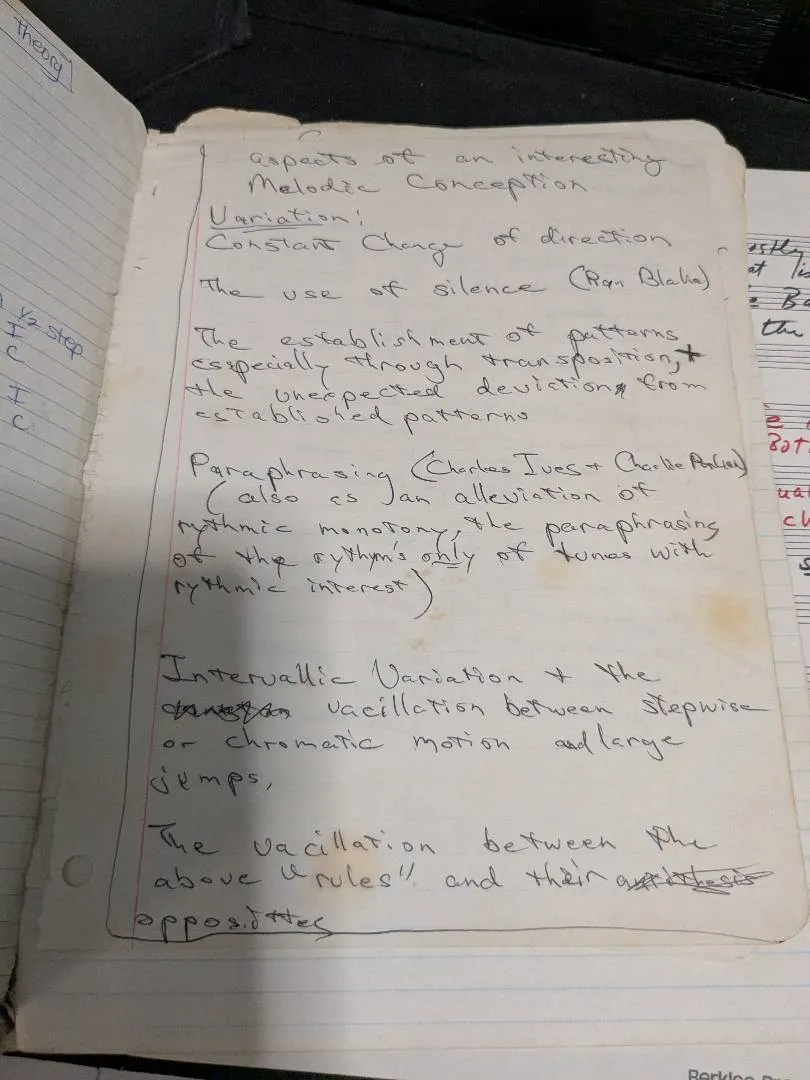 Theory
1/2 step
I
C
I
C
aspects of an interesting
Melodic Conception
Variation:
Constant Change of direction
The use of silence (Ran Blake)
The establishment of patterns
especially through transposition, +
the unexpected deviations from
established patterns
Paraphrasing (Charles Ives + Charlie Parker)
(also as an alleviation of
rythmic monotony, the paraphrasing
of the rythym's only of tunes with
rythmic interest)
Intervallic Variation + the
vacillation between stepwise
or chromatic motion and large
jumps,
The vacillation between the
above "rules" and their antithesis
opposittes
the